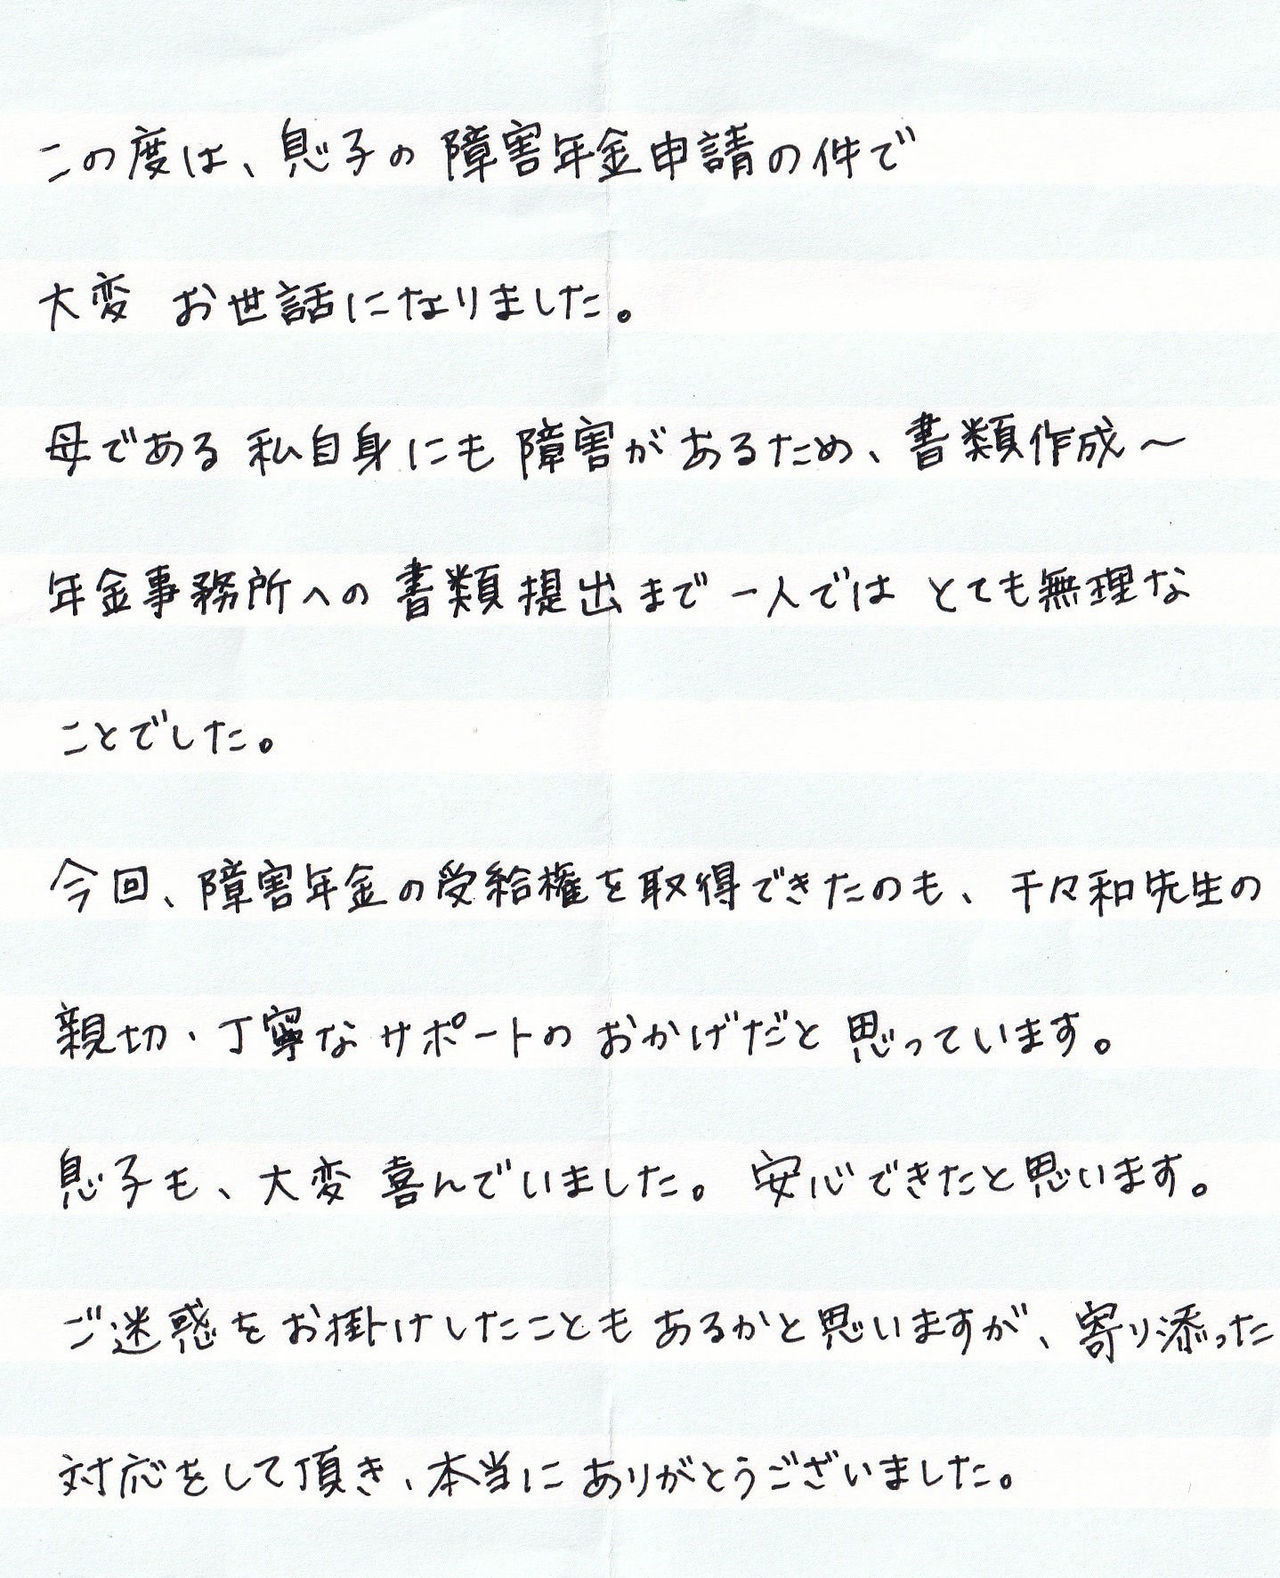 この度は、息子の障害年金申請の件で
大変 お世話になりました。
母である私自身にも障害があるため、書類作成〜
年金事務所への書類提出まで一人では とても無理な
ことでした。
今回、障害年金の受給権を取得できたのも、千々和先生の
親切・丁寧なサポートの おかげだと思っています。
息子も、大変 喜んでいました。 安心できたと思います。
ご迷惑をお掛けしたこともあるかと思いますが、寄り添った
対応をして頂き、本当にありがとうございました。